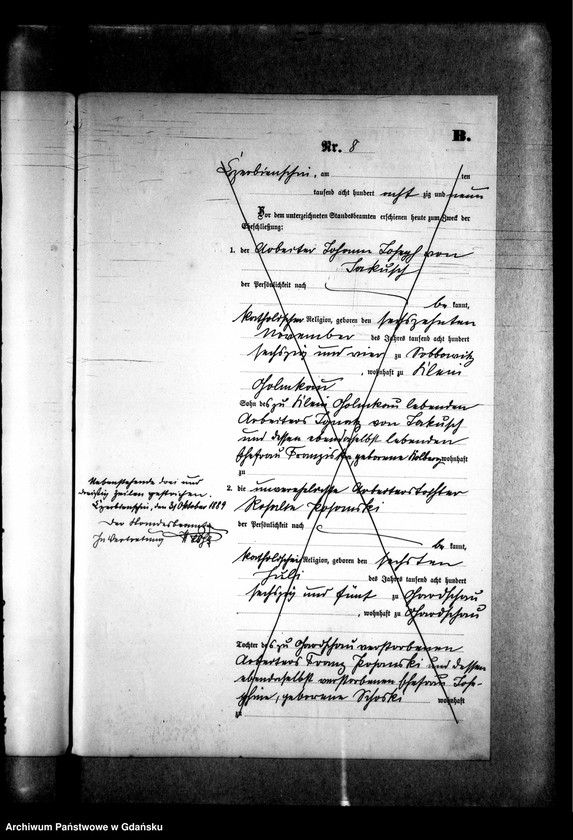 B.
Nr. 8
am ten
tausend acht hundert acht zig und neun
Vor dem unterzeichneten Standesbeamten erschienen heute zum Zweck der
Eheschließung:
1. der Arbeiter Johann Joseph von
Jakusch
der Persönlichkeit nach
be kannt,
katholischer Religion, geboren den sechszehnten
November des Jahres tausend acht hundert
sechszig und vier zu Sobbowitz
, wohnhaft zu Klein
Golmkau
Sohn des zu Klein Golmkau lebenden
Arbeiters Ignatz von Jakusch
und dessen ebendaselbst lebenden
Ehefrau Franziska, geborene wohnhaft
zu
2. die unverehelichte Arbeiterstochter
Rosalie Posanski
der Persönlichkeit nach
be kannt,
katholischer Religion, geboren den sechsten
Juli des Jahres tausend acht hundert
sechszig und fünf zu Gardschau
, wohnhaft zu Gardschau
Tochter des zu Gardschau verstorbenen
Arbeiters Franz Posanski und dessen
ebendaselbst verstorbenen Ehefrau Jose-
phine, geborene wohnhaft
zu
Nebenstehende drei und
dreißig Zeilen gestrichen.
den 31 Oktober 1889
Der Standesbeamte
In Vertretung
Archiwum Państwowe w Gdańsku